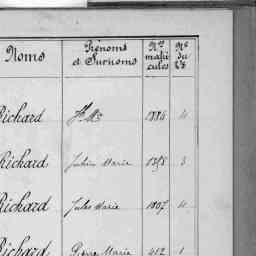 Noms Prénoms et Surnoms Nos matricules No du Rt
Richard Jn Mie 1884 4
Richard Julien Marie 1315 3
Richard Jules Marie 1907 4
Richard Pierre Marie 412 1